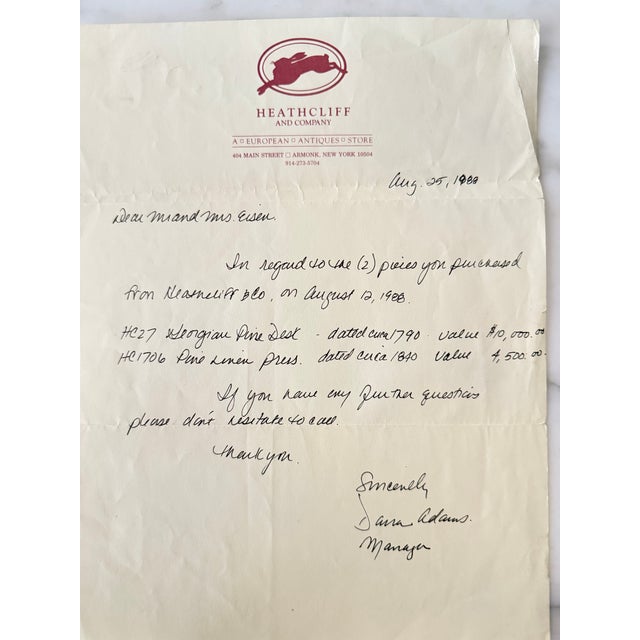 HEATHCLIFF
AND COMPANY
A □ EUROPEAN □ ANTIQUES □ STORE
404 MAIN STREET □ ARMONK, NEW YORK 10504
914-273-5704
Aug. 25, 1988
Dear Mr and Mrs. Eisen.
In regard to the (2) pieces you purchased
from Heathcliff & Co, on August 12, 1988.
HC27 Georgian Pine Desk - dated circa 1790 - value $10,000.00
HC1706 Pine Linen Press. dated circa 1840 value 4,500.00.
If you have any further questions
please don't hesitate to call.
Thank you.
Sincerely
Adams.
Manager